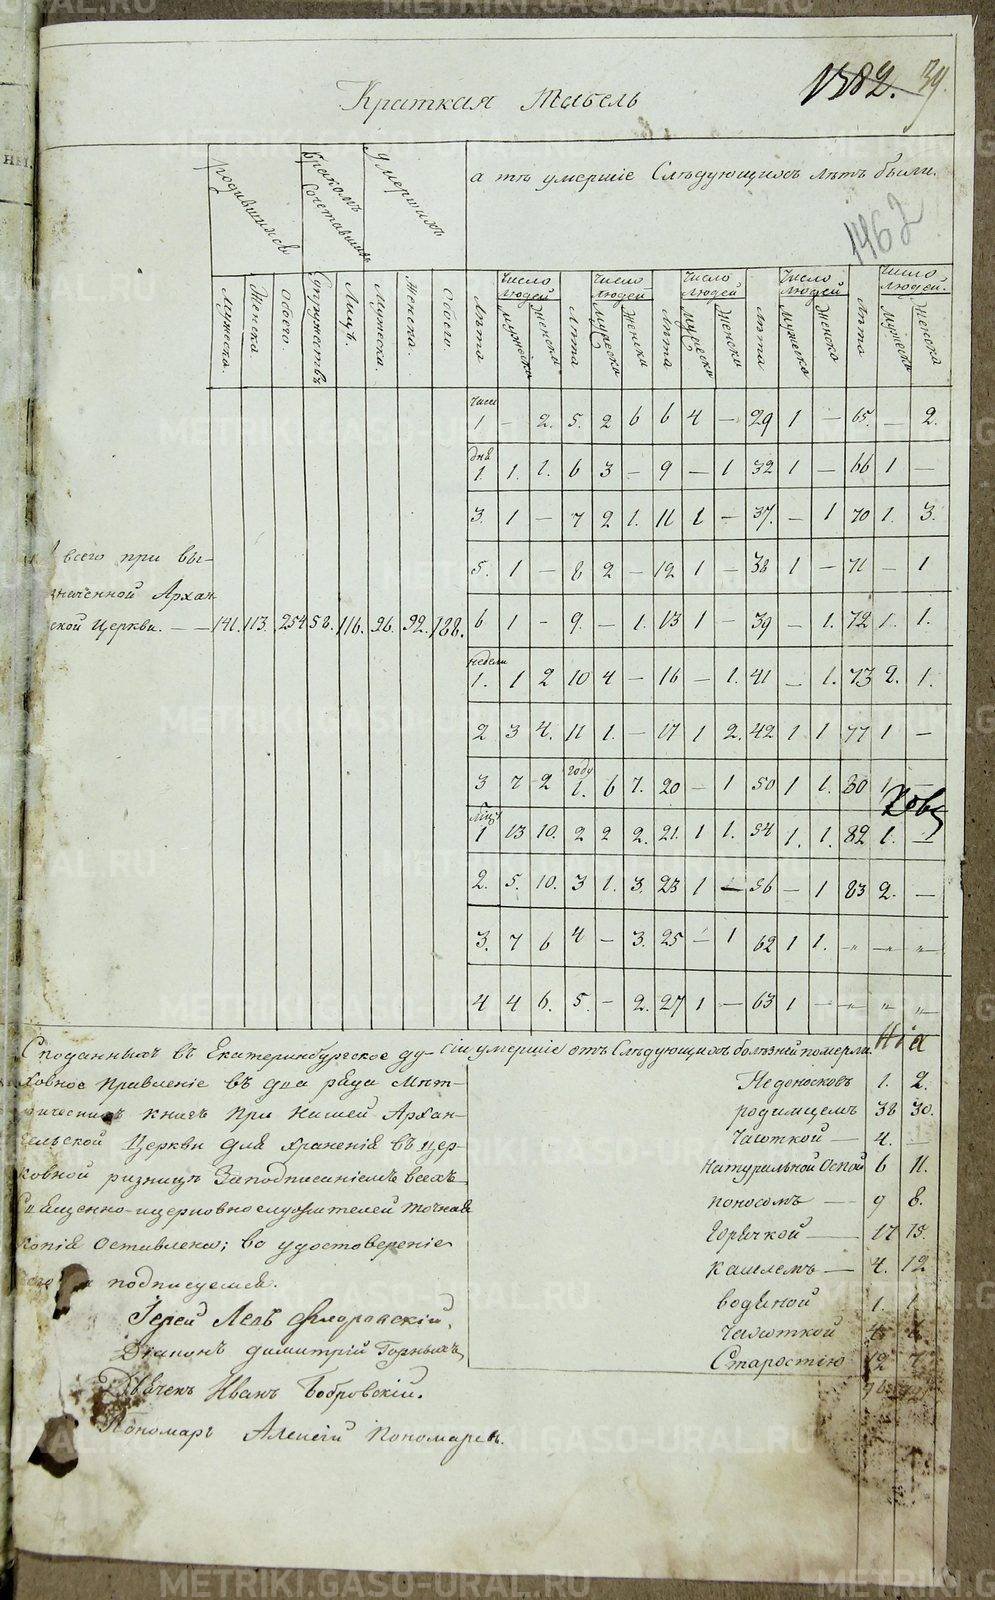 1382. 39.
Краткая Табель
родившихся
бракомъ сочетавшихся
умершихъ
а тѣ умершіе Слѣдующихъ лѣтъ были.
1462
Число людей Число людей Число людей Число людей Число людей
Мужеска. Женска Обоего Супружествъ Лицъ. Мужеска. Женска. Обоего Лѣта Мужеска Женска Лѣта Мужеска Женска Лѣта Мужеска Женска Лѣта Мужеска Женска Лѣта Мужеска Женска
часы
1 – 2. 5. 2 6 6 4 – 29 1 – 65. – 2.
дня
1. 1. 1. 6 3 – 9 – 1 32 1 – 66 1 –
3. 1 – 7 2 1. 11 1 – 37. – 1 70 1. 3.
5. 1 – 8 2 – 12 1 – 38 1 – 71 – 1
всего при вы-
значенной Архан-
ской Церкви. – – 141. 113. 254 58. 116. 96. 92. 188. 6 1 – 9. – 1. 13 1 – 39 – 1. 72 1. 1.
недели
1. 1 2 10 4 – 16 – 1. 41 – 1. 73 2. 1.
2 3 4. 11 1. – 17 1 2. 42 1 1 77 1 –
3 7 2 году 1. 6 7. 20 – 1 50 1 1. 80 1
1 13 10. 2 2 2. 21. 1 1. 54 1. 1. 82 1. –
2. 5. 10. 3 1. 3. 23 1 – 56 – 1 83 2. –
3. 7 6 4 – 3. 25 – 1 62 1 1. „ „ „
4 4 6. 5. – 2. 27 1 – 63 1 – „ „ „
С поданныхъ въ Екатеринбургское ду-
ховное Правленіе въ два ряда Мет-
рическихъ книгъ при нашей Архан-
гельской Церкви для храненія въ цер-
ковной ризницѣ За подписаніемъ всехъ
Священно-церковнослужителей точная
копія оставлена; во удостовереніе
подписуемся.
Іерей Левъ Флоровскій.
Діаконъ Димитрій Горныхъ
Дьячекъ Иванъ Бобровскій.
Пономарь Алексій Пономаревъ.
сіи умершіе отъ Слѣдующихъ болѣзней померли.
Недоносковъ 1. 2.
родимцемъ 38 30.
Чахоткой – 4. –
Натуральной Оспой 6 11.
поносомъ – 9 8.
Горячкой – 17 15.
кашлемъ – 4. 12
водяной 1. 1.
чахоткой 4 6
Старостію 12 7